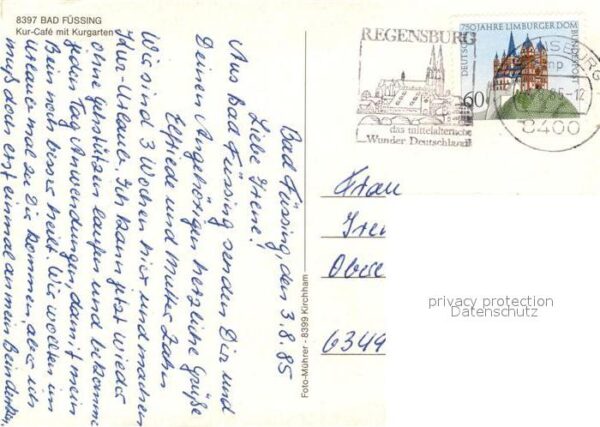 8397 BAD FÜSSING
Kur-Café mit Kurgarten
Bad Füssing, den 3.8.85
Liebe Irene!
Aus Bad Füssing senden Dir und
Deinen Angehörigen herzliche Grüße
Elfriede und Mutter Zahn
Wir sind 3 Wochen hier und machen
Kur-Urlaub. Ich kann jetzt wieder
ohne gehstützen laufen und bekomme
jeden Tag Anwendungen, damit mein
Bein noch besser heilt. Wir wollten im
Urlaub mal zu Dir kommen aber ich
muß doch erst einmal an mein Bein denken,
Foto-Mührer - 8399 Kirchham
REGENSBURG
das mittelalterliche
Wunder Deutschlands
750 JAHRE LIMBURGER DOM
DEUTSCHE BUNDESPOST
60
-12
8400
Frau
Irene
Obere
6349
privacy protection
Datenschutz